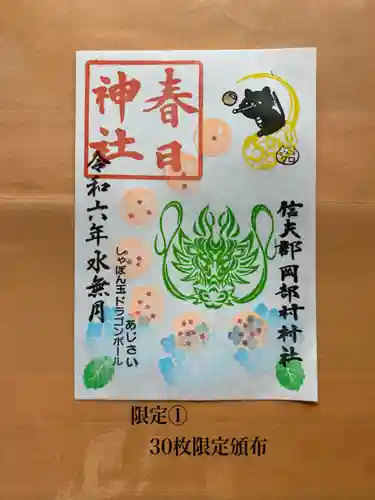 春日
神社
信夫郡岡部村村社
令和六年水無月
あじさい
しゃぼん玉ドラゴンボール
限定①
30枚限定頒布